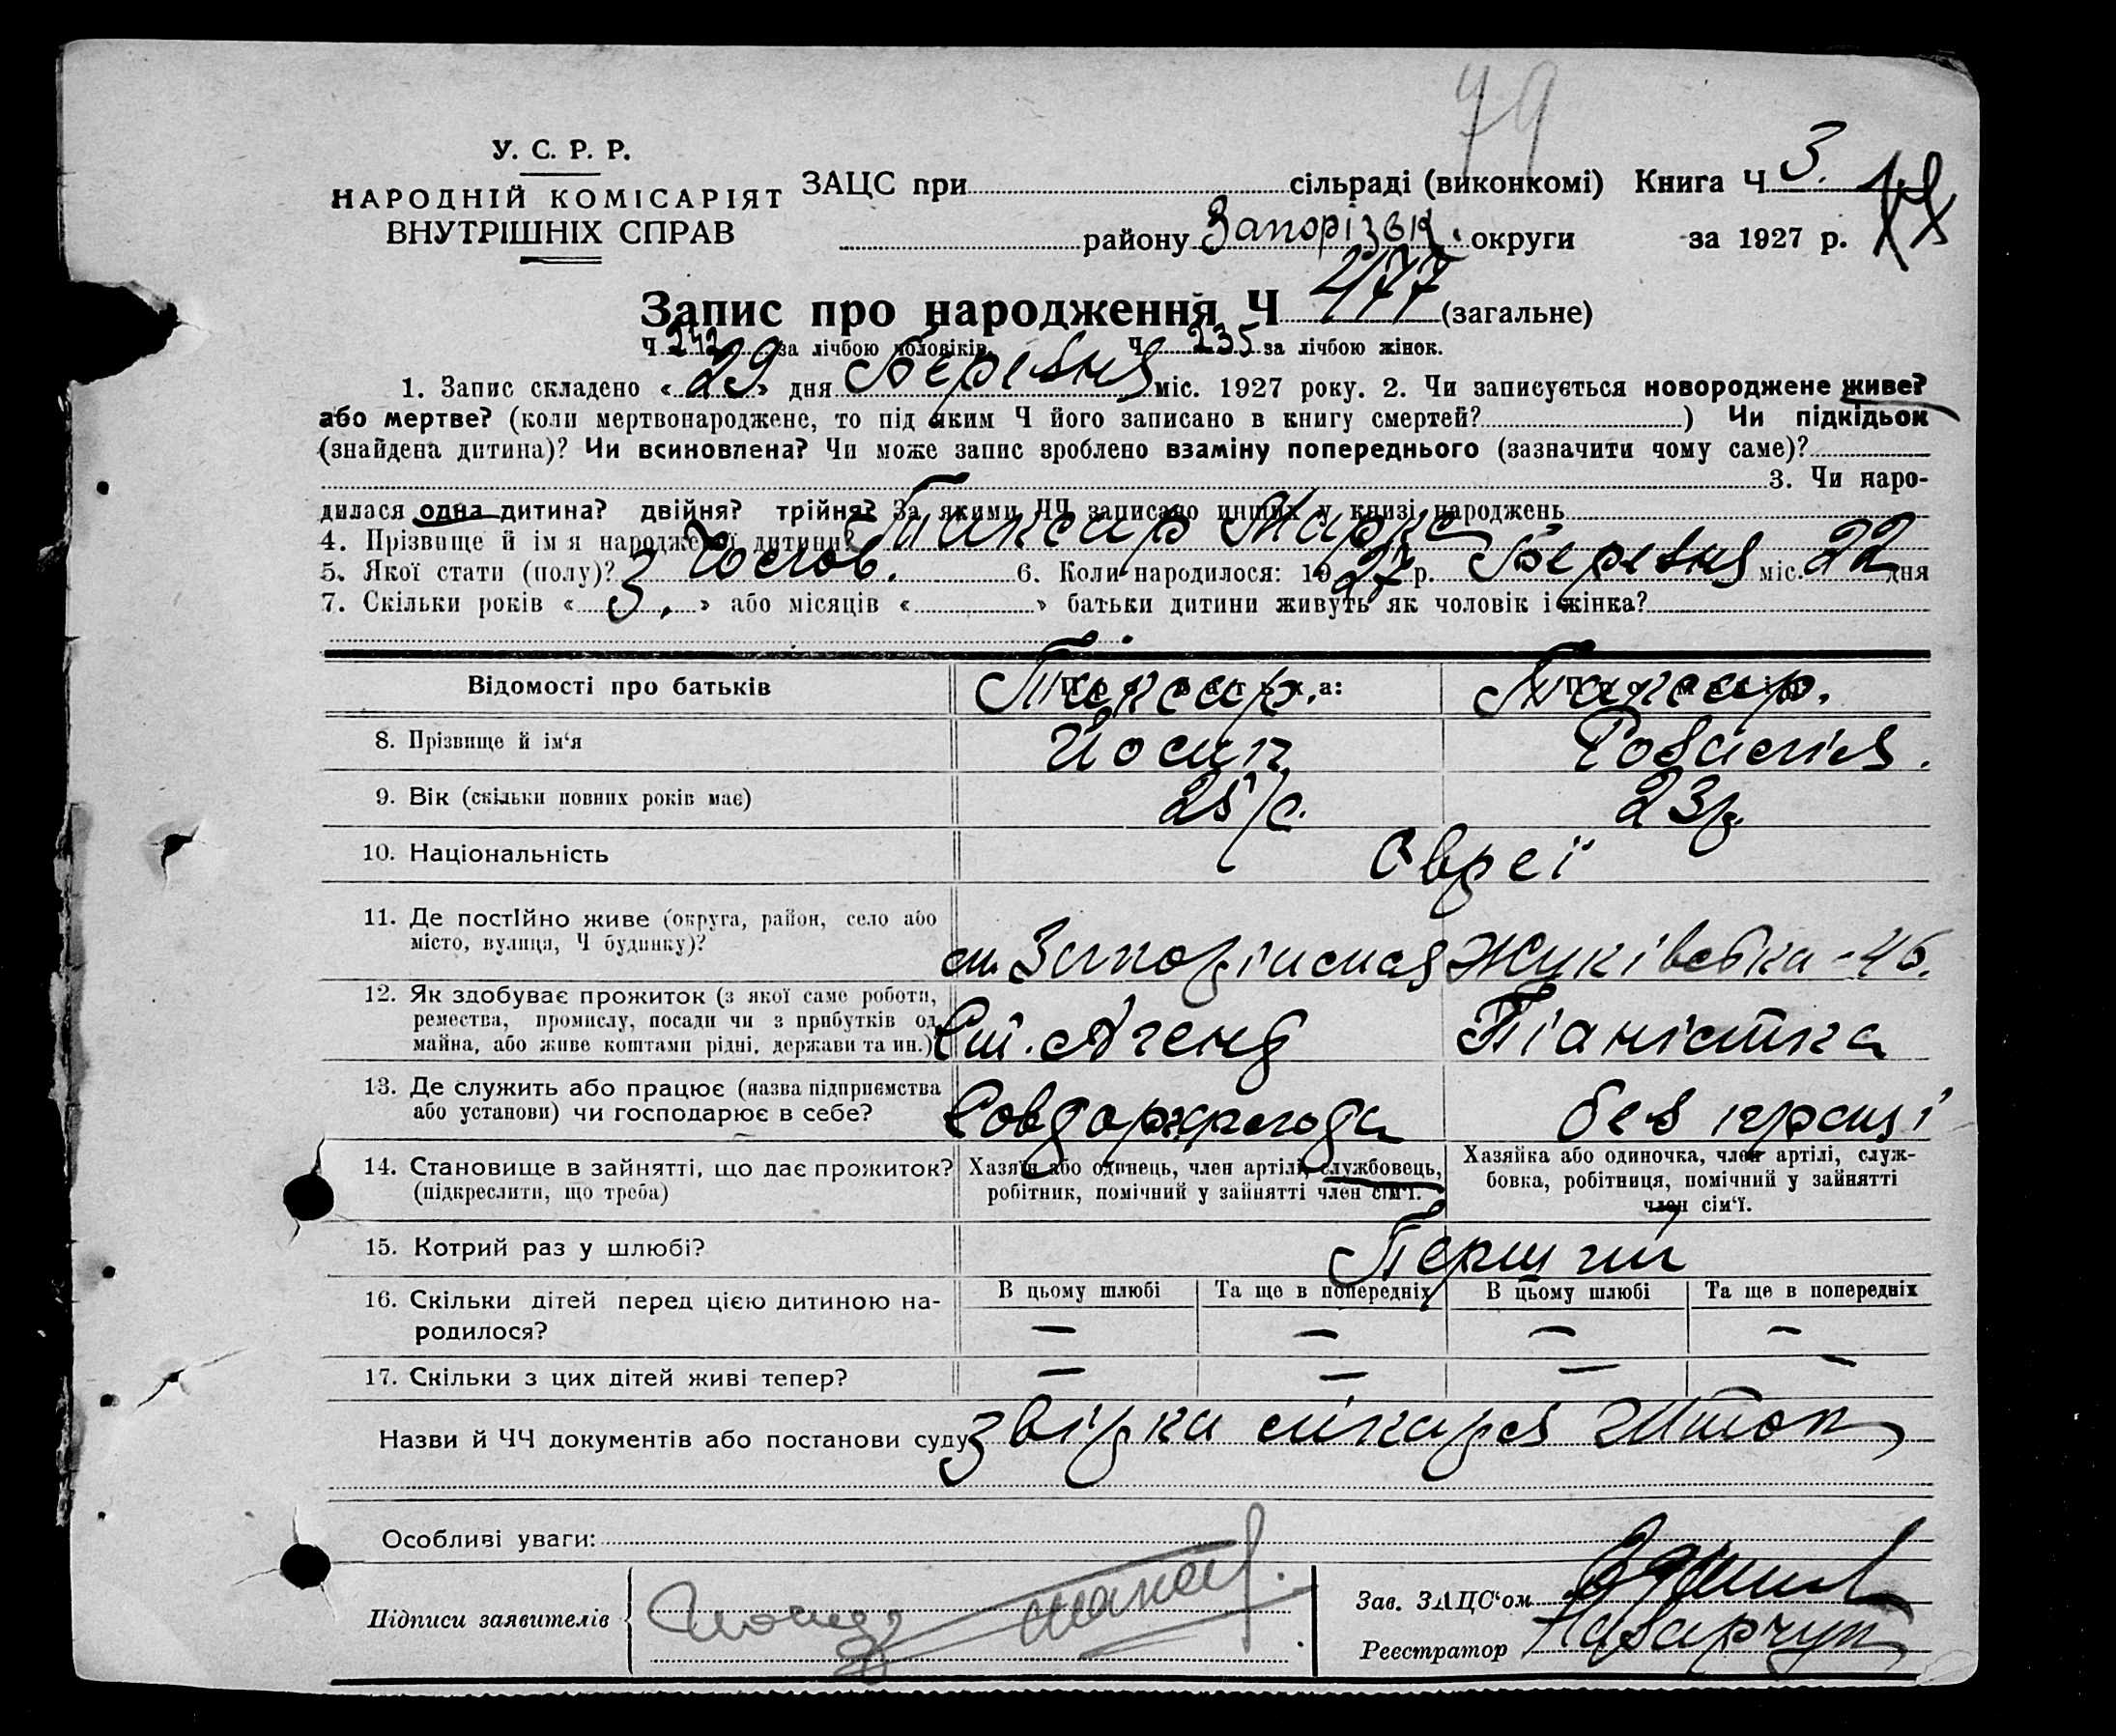 79
У. С. Р. Р.
НАРОДНІЙ КОМІСАРІЯТ
ВНУТРІШНІХ СПРАВ
ЗАЦС при сільраді (виконкомі) Книга Ч 3.
району Запорізьк. округи за 1927 р.
Запис про народження Ч 477 (загальне)
Ч 242 за лічбою чоловіків. Ч 235 за лічбою жінок.
1. Запис складено « 29 » дня Березня міс. 1927 року. 2. Чи записується новороджене живе?
або мертве? (коли мертвонароджене, то під яким Ч його записано в книгу смертей? ) Чи підкідьок
(знайдена дитина)? Чи всиновлена? Чи може запис зроблено взаміну попереднього (зазначити чому саме)?
3. Чи наро-
дилася одна дитина? двійня? трійня? За якими ЧЧ записано инших у книзі народжень
4. Прізвище й ім я народженої дитини? Таксар Марк
5. Якої стати (полу)? Чолов. 6. Коли народилося: 1927 р. Березня міс. 22 дня
7. Скільки років « 3. » або місяців « » батьки дитини живуть як чоловік і жінка?
Відомості про батьків Таксар. Таксар.
8. Прізвище й ім‘я Йосип Розалія.
9. Вік (скільки повних років має) 25 р. 23 р.
10. Національність Євреї
11. Де постійно живе (округа, район, село або
місто, вулиця, Ч будинку)? Жуківська - 46.
12. Як здобуває прожиток (з якої саме роботи,
ремества, промислу, посади чи з прибутків од
майна, або живе коштами рідні, держави та ин.) Агент Піаністка
13. Де служить або працює (назва підприємства
або установи) чи господарює в себе? без праці
14. Становище в зайнятті, що дає прожиток?
(підкреслити, що треба)
Хазяїн або одинець, член артілі, службовець,
робітник, помічний у зайнятті член сім‘ї.
Хазяйка або одиночка, член артілі, служ-
бовка, робітниця, помічний у зайнятті
член сім‘ї.
15. Котрий раз у шлюбі? Перший
16. Скільки дітей перед цією дитиною на-
родилося?
В цьому шлюбі Та ще в попередніх В цьому шлюбі Та ще в попередніх
— — — —
17. Скільки з цих дітей живі тепер? — — — —
Назви й ЧЧ документів або постанови суду звірка лікаря
Особливі уваги:
Підписи заявителів
Зав. ЗАЦС‘ом
Реєстратор Назарчук